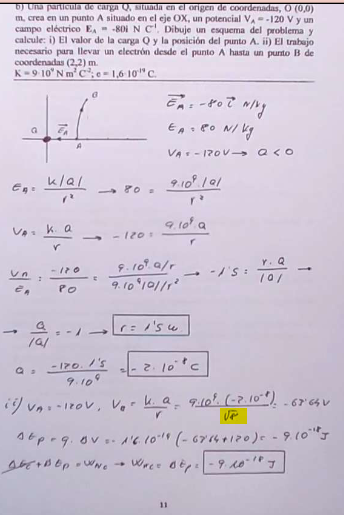 b) Una partícula de carga Q, situada en el origen de coordenadas, O (0,0)
m, crea en un punto A situado en el eje OX, un potencial V_A = -120 V y un
campo eléctrico E_A = -80i N C⁻¹. Dibuje un esquema del problema y
calcule: i) El valor de la carga Q y la posición del punto A. ii) El trabajo
necesario para llevar un electrón desde el punto A hasta un punto B de
coordenadas (2,2) m.
K = 9·10⁹ N m² C⁻²; e = 1,6·10⁻¹⁹ C.
B
Q E_A A
E_A = -80 i N/kg
E_A = 80 N/kg
V_A = -120V → Q < 0
E_A = k|Q| / r² → 80 = 9·10⁹·|Q| / r²
V_A = k·Q / r → -120 = 9·10⁹·Q / r
V_A / E_A = -120 / 80 = 9·10⁹·Q/r / 9·10⁹|Q|/r² → -1'5 = r·Q / |Q| →
→ Q / |Q| = -1 → r = 1'5 m
Q = -120·1'5 / 9·10⁹ = -2·10⁻⁸ C
ii) V_A = -120V, V_B = k·Q / r = 9·10⁹·(-2·10⁻⁸) / √8 = -63'64V
ΔEp = q·ΔV = -1'6·10⁻¹⁹ (-63'64+120) = -9·10⁻¹⁸ J
ΔEc + ΔEp = W_NC → W_NC = ΔEp = -9·10⁻¹⁸ J
11